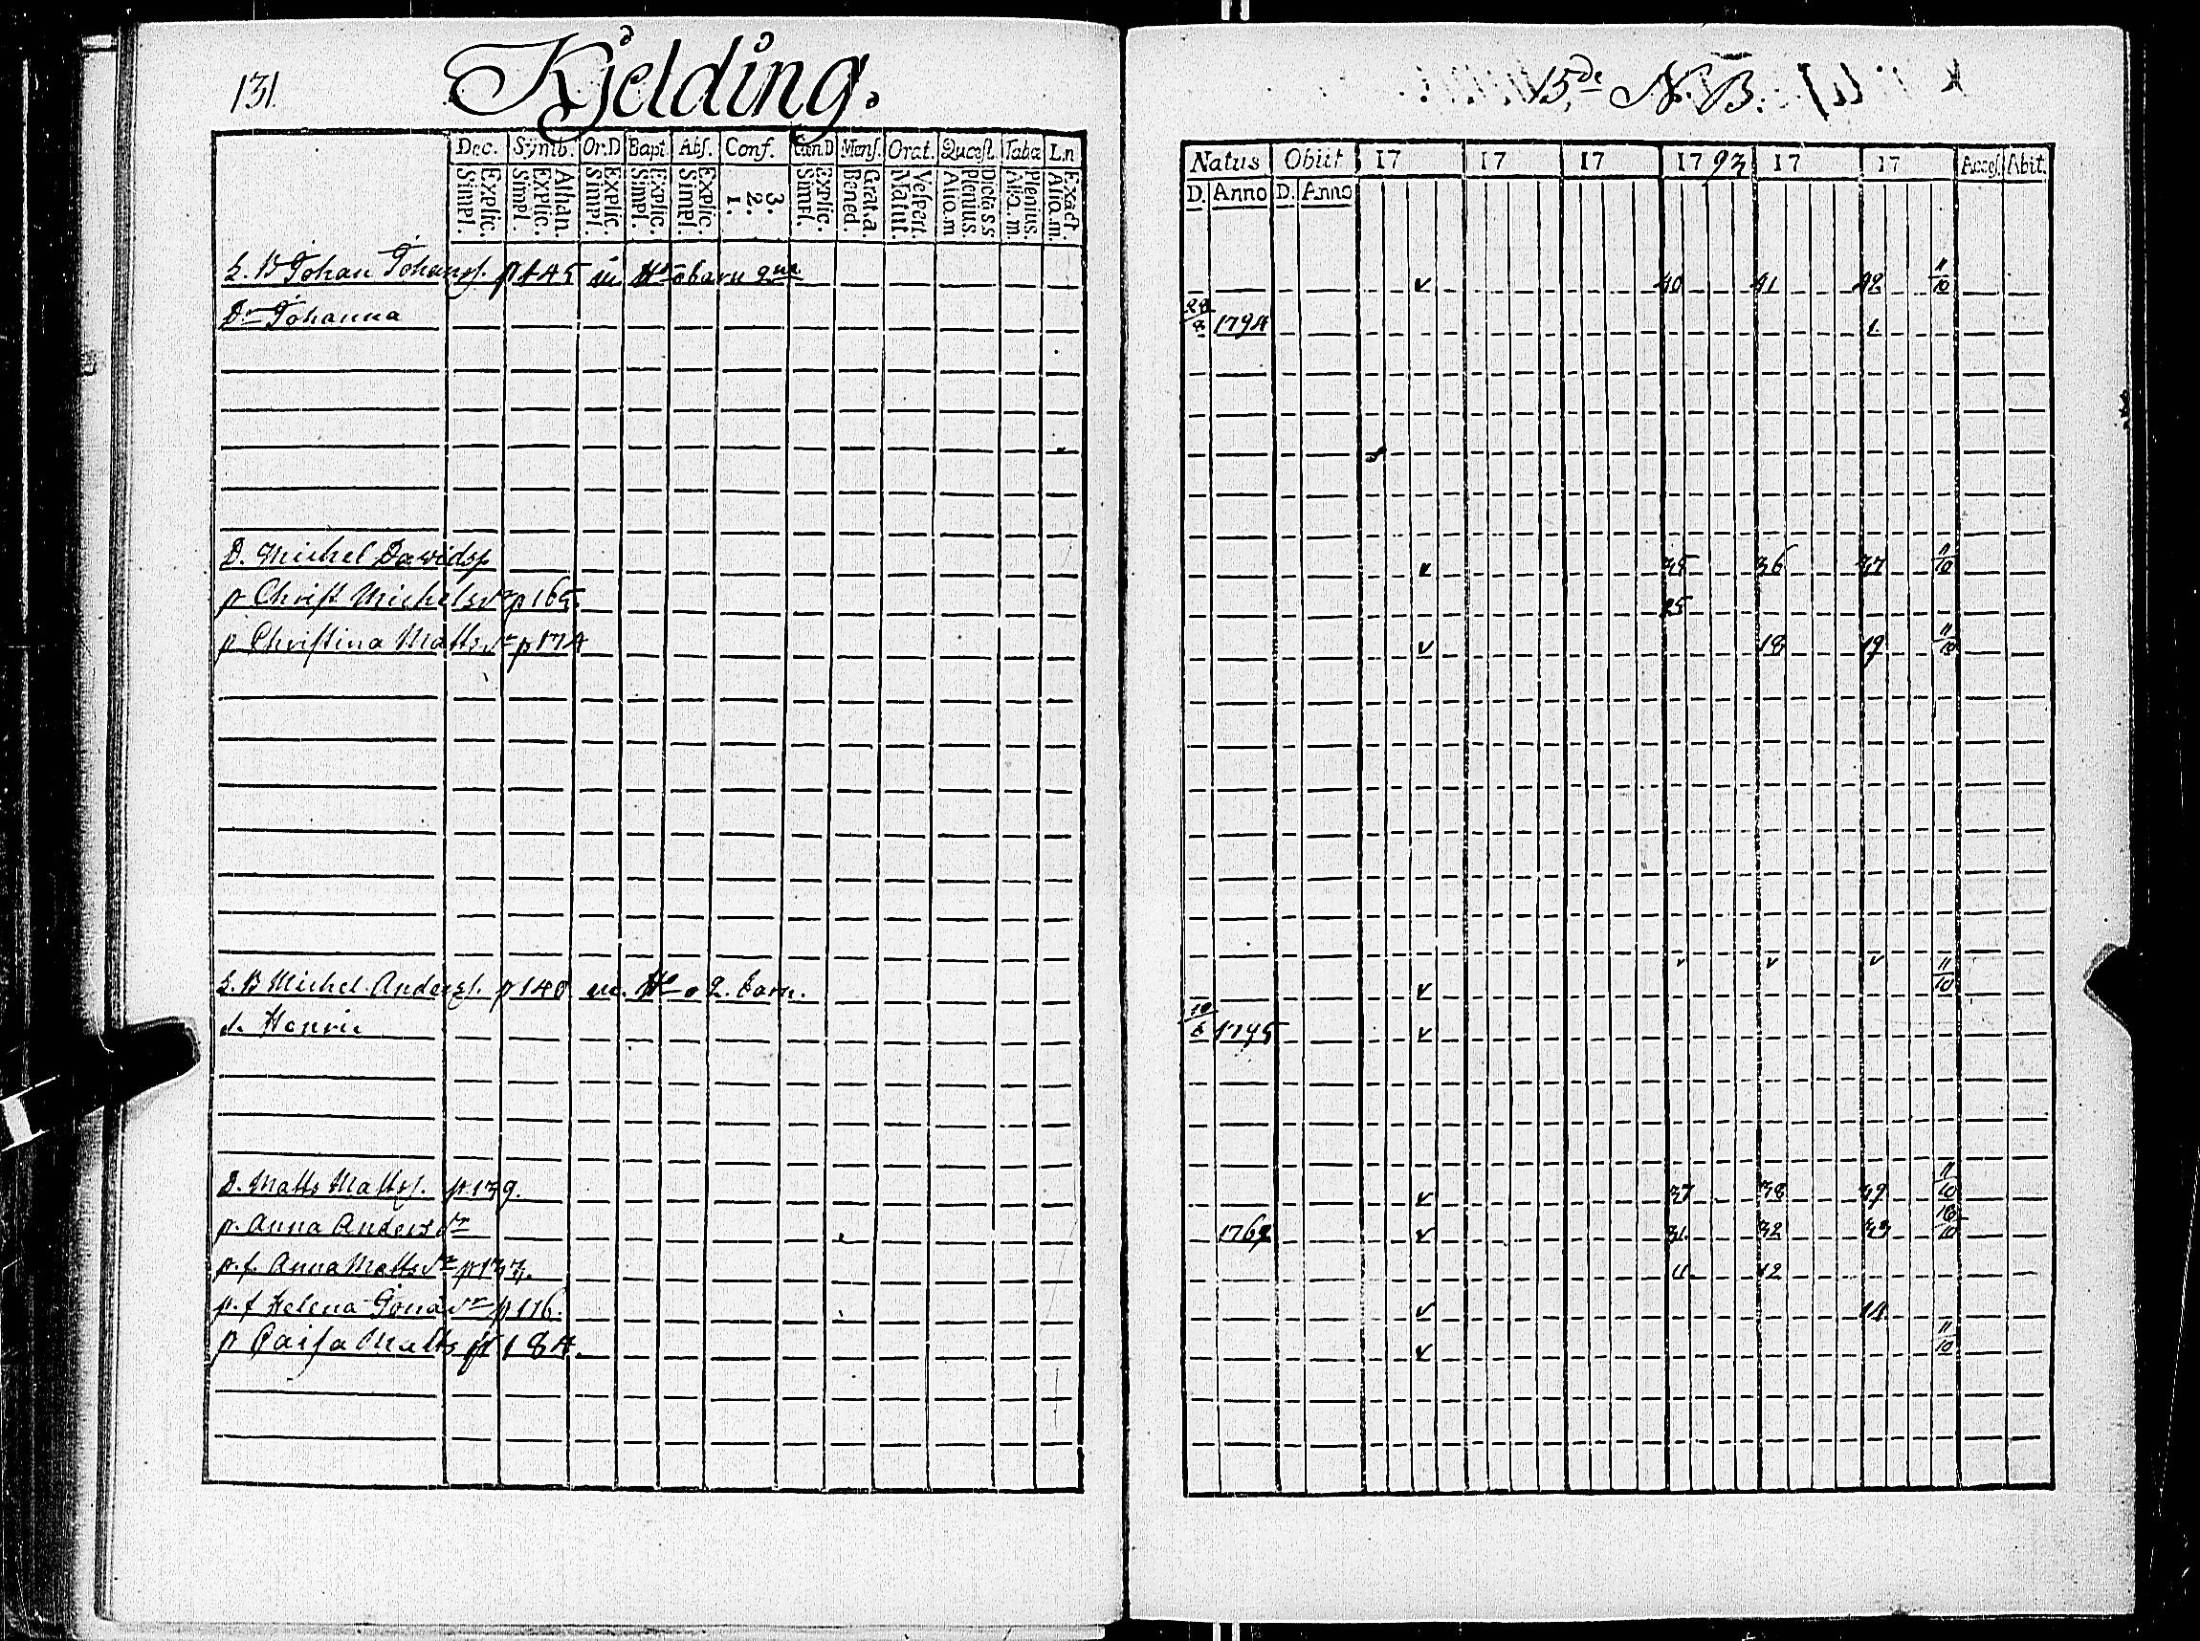 131
Kjelding.
Dec. Symb. Or.D Bapt. Abs. Conf. CœnD Mens. Orat. Quæst. Tabœ L.n
Explic. Simpl. Athan. Explic. Simpl. Explic. Simpl. Explic. Simpl. Explic. Simpl. 3. 2. 1. Explic. Simpl. Grat.a. Bened. Vespert. Matut. Dicta S S Plenius. Aliq.m Plenius. Aliq.m. Exact. Aliq.m.
Johan Johans. p 145
Dr Johanna
D. Michel Davidsp
p Christ Michelsdr p 165.
p. Christina Mattsdr p 174
Michel Anders. p 140 2. barn.
s. Henric
D. Matts Matts. p. 139.
p. Anna Andersdr
p. f. Anna Mattsdr p 133.
p. f Helena p 116.
p Caisa Matts p 184.
15de N. B.
Natus Obiit 17 17 17 1793 17 17 Acces. Abit.
D. Anno D. Anno
v 40 41 42 11/10
1794 1.
v 35 36 37 11/10
25
v 18 19 11/10
v v v v 11/10
1795 v
v 37 38 39 11/10
1762 v 31 32 33
11 12
v 14
v 11/10